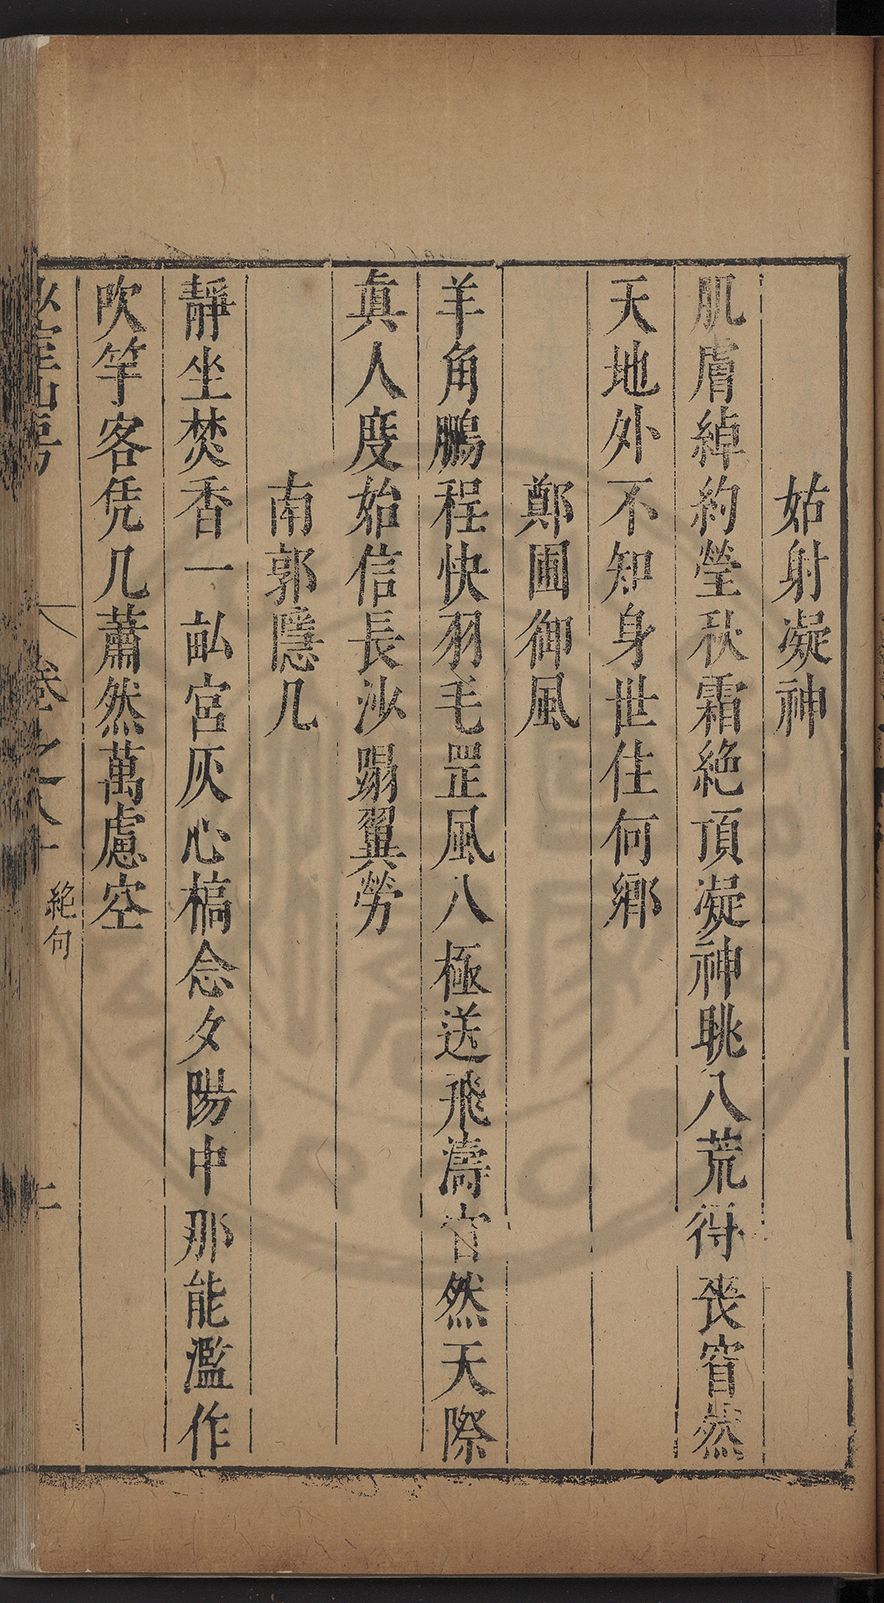 姑射凝神
肌膚綽約瑩秋霜絶頂凝神眺八荒得喪窅然
天地外不知身世住何鄉
鄭圃御風
羊角鵬程快羽毛罡風八極送飛濤窅然天際
真人度始信長沙蹋翼勞
南郭隱几
靜坐焚香一畝宮灰心槁念夕陽中那能濫作
吹竽客凭几蕭然萬慮空
山房 卷之八十 絶句